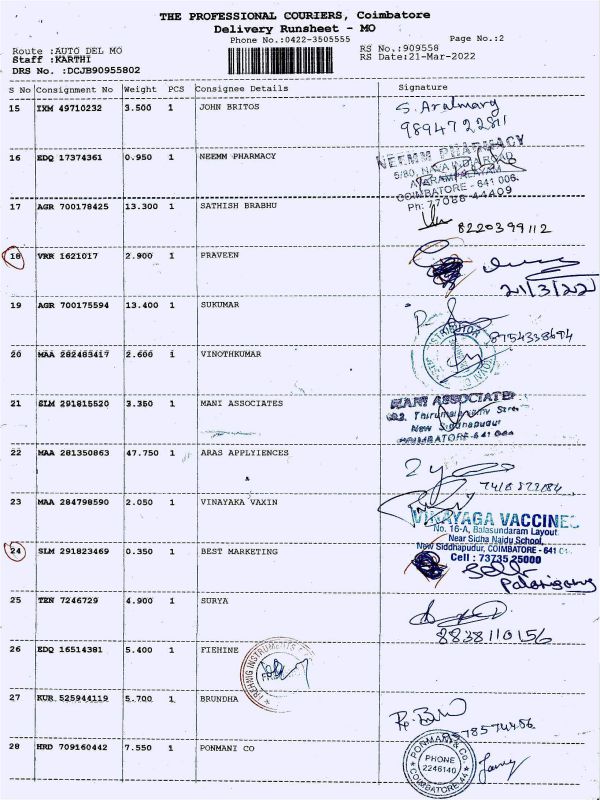 THE PROFESSIONAL COURIERS, Coimbatore
Delivery Runsheet - MO
Phone No.:0422-3505555
Page No.:2
Route :AUTO DEL MO
RS No.:909558
Staff :KARTHI
RS Date:21-Mar-2022
DRS No. :DCJB90955802
S No Consignment No Weight PCS Consignee Details Signature
15 IXM 49710232 3.500 1 JOHN BRITOS
S. Aralmary
9894722811
16 EDQ 17374361 0.950 1 NEEMM PHARMACY
NEEMM PHARMACY
5/80, NAVA INDIA ROAD
AVARAMPALAYAM
COIMBATORE - 641 006.
Ph: 77086 44409
17 AGR 700178425 13.300 1 SATHISH BRABHU
8220399112
18 VRR 1621017 2.900 1 PRAVEEN
21/3/22
19 AGR 700175594 13.400 1 SUKUMAR
8754338694
20 MAA 282485417 2.600 1 VINOTHKUMAR
21 SLM 291815520 3.350 1 MANI ASSOCIATES
MANI ASSOCIATE
New Siddhapudur
COIMBATORE-641 044
22 MAA 281350863 47.750 1 ARAS APPLYIENCES
23 MAA 284798590 2.050 1 VINAYAKA VAXIN
VINAYAGA VACCINE
No. 16-A, Balasundaram Layout
Near Sidha Naidu School,
New Siddhapudur, COIMBATORE - 641
Cell : 73735 25000
24 SLM 291823469 0.350 1 BEST MARKETING
25 TEN 7246729 4.900 1 SURYA
8838110156
26 EDQ 16514381 5.400 1 FIEHINE
27 KUR 525944119 5.700 1 BRUNDHA
28 HRD 709160442 7.550 1 PONMANI CO
PONMANI & CO.
PHONE
2246140
COIMBATORE-44